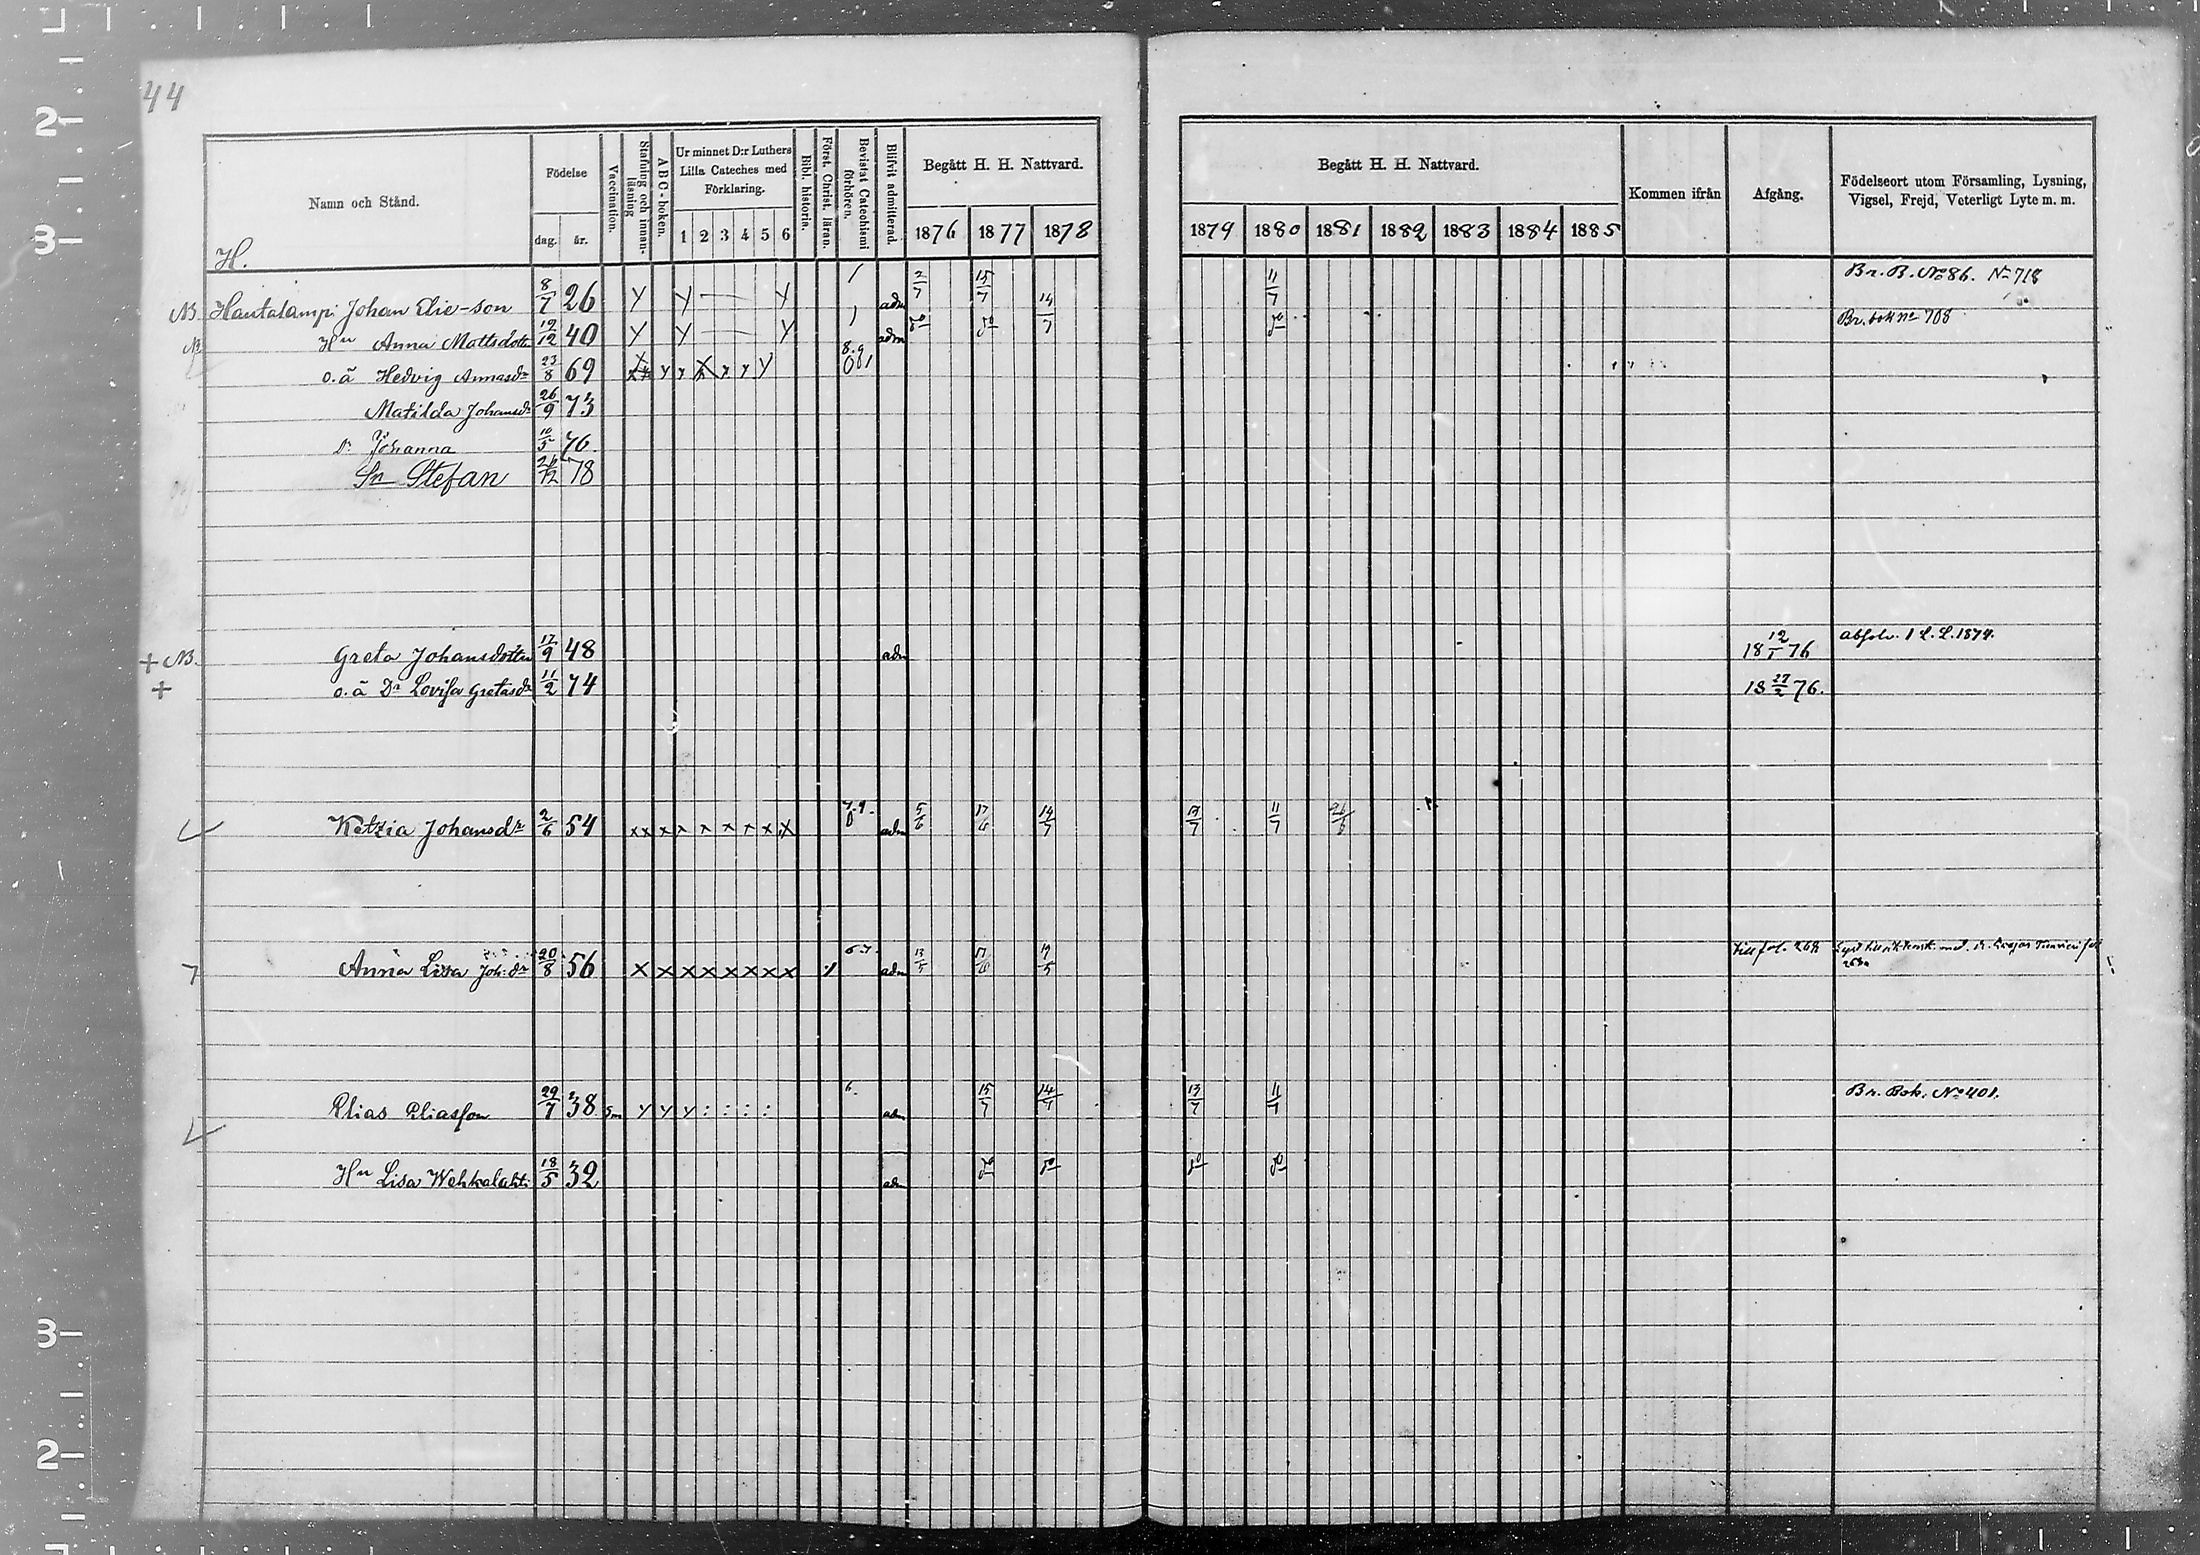 44
Namn och Stånd.
Födelse
dag.
år.
Vaccination.
Stafning och innanläsning
ABC-boken.
Ur minnet D:r Luthers
Lilla Cateches med
Förklaring.
1 2 3 4 5 6
Bibl. historia.
Först. Christ. läran.
Bevistat Catechismi förhören.
Blifvit admitterad.
Begått H. H. Nattvard.
1876 1877 1878
Begått H. H. Nattvard.
1879 1880 1881 1882 1883 1884 1885
Kommen ifrån
Afgång.
Födelseort utom Församling, Lysning,
Vigsel, Frejd, Veterligt Lyte m. m.
H.
NB. Hautalampi Johan Elie-son 8/7 26 y y — — y / adm 2/7 15/7 14/7 11/7 Br. B. No 86. No 718
N Hu Anna Mattsdotter 19/12 40 y y — — y / adm do do do Br. bok no 708
o.ä Hedvig Annasdr 23/8 69 8.9
Matilda Johansdr 26/9 73
Dr Johanna 10/5 76
Sn Stefan 26/12 78
+ NB. Greta Johansdotter 17/9 48 adm 18 12/1 76 absolv. 1 L. L. 1874.
+ o.ä Dr Lovisa Gretasdr 11/2 74 18 27/2 76.
Ketzia Johansdr 2/6 54 x x x x x x x x x adm 5/6 17/6 14/7 13/7 11/7 26/6
7 Anna Lisa Joh:dr 20/8 56 x x x x x x x x 6 7. adm 13/5 17/6 19/5 till fol. 268
Elias Eliasson 29/7 38 y y y : : : : 6. adm 15/7 14/7 13/7 11/7 Br. Bok. No 401.
Hu Lisa Wehkalahti 18/5 32 adm do do do do